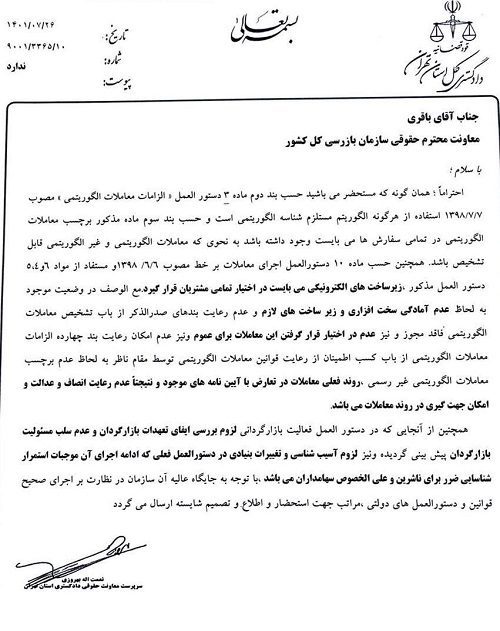 بسمه تعالی
قوه قضائیه
دادگستری کل استان تهران
تاریخ: ۱۴۰۱/۰۷/۲۶
شماره: ۹۰۰۱/۳۳۶۵/۱۰
پیوست: ندارد
جناب آقای باقری
معاونت محترم حقوقی سازمان بازرسی کل کشور
با سلام ؛
احتراماً ؛ همان گونه که مستحضر می باشید حسب بند دوم ماده ۳ دستور العمل « الزامات معاملات الگوریتمی » مصوب
۱۳۹۸/۷/۷ استفاده از هرگونه الگوریتم مستلزم شناسه الگوریتمی است و حسب بند سوم ماده مذکور برچسب معاملات
الگوریتمی در تمامی سفارش ها می بایست وجود داشته باشد به نحوی که معاملات الگوریتمی و غیر الگوریتمی قابل
تشخیص باشد. همچنین حسب ماده ۱۰ دستورالعمل اجرای معاملات بر خط مصوب ۱۳۹۸ /۶/۶ و مستفاد از مواد ۶و۵،۴
دستور العمل مذکور ،زیرساخت های الکترونیکی می بایست در اختیار تمامی مشتریان قرار گیرد.مع الوصف در وضعیت موجود
به لحاظ عدم آمادگی سخت افزاری و زیر ساخت های لازم و عدم رعایت بندهای صدرالذکر از باب تشخیص معاملات
الگوریتمی فاقد مجوز و نیز عدم در اختیار قرار گرفتن این معاملات برای عموم ونیز عدم امکان رعایت بند چهارده الزامات
معاملات الگوریتمی از باب کسب اطمینان از رعایت قوانین معاملات الگوریتمی توسط مقام ناظر به لحاظ عدم برچسب
معاملات الگوریتمی غیر رسمی ، روند فعلی معاملات در تعارض با آیین نامه های موجود و نتیجتاً عدم رعایت انصاف و عدالت و
امکان جهت گیری در روند معاملات می باشد.
همچنین از آنجایی که در دستور العمل فعالیت بازارگردانی لزوم بررسی ایفای تعهدات بازارگردان و عدم سلب مسئولیت
بازارگردان پیش بینی گردیده ونیز لزوم آسیب شناسی و تغییرات بنیادی در دستورالعمل فعلی که ادامه اجرای آن موجبات استمرار
شناسایی ضرر برای ناشرین و علی الخصوص سهامداران می باشد ،با توجه به جایگاه عالیه آن سازمان در نظارت بر اجرای صحیح
قوانین و دستورالعمل های دولتی ،مراتب جهت استحضار و اطلاع و تصمیم شایسته ارسال می گردد
نعمت اله بهروزی
سرپرست معاونت حقوقی دادگستری استان تهران